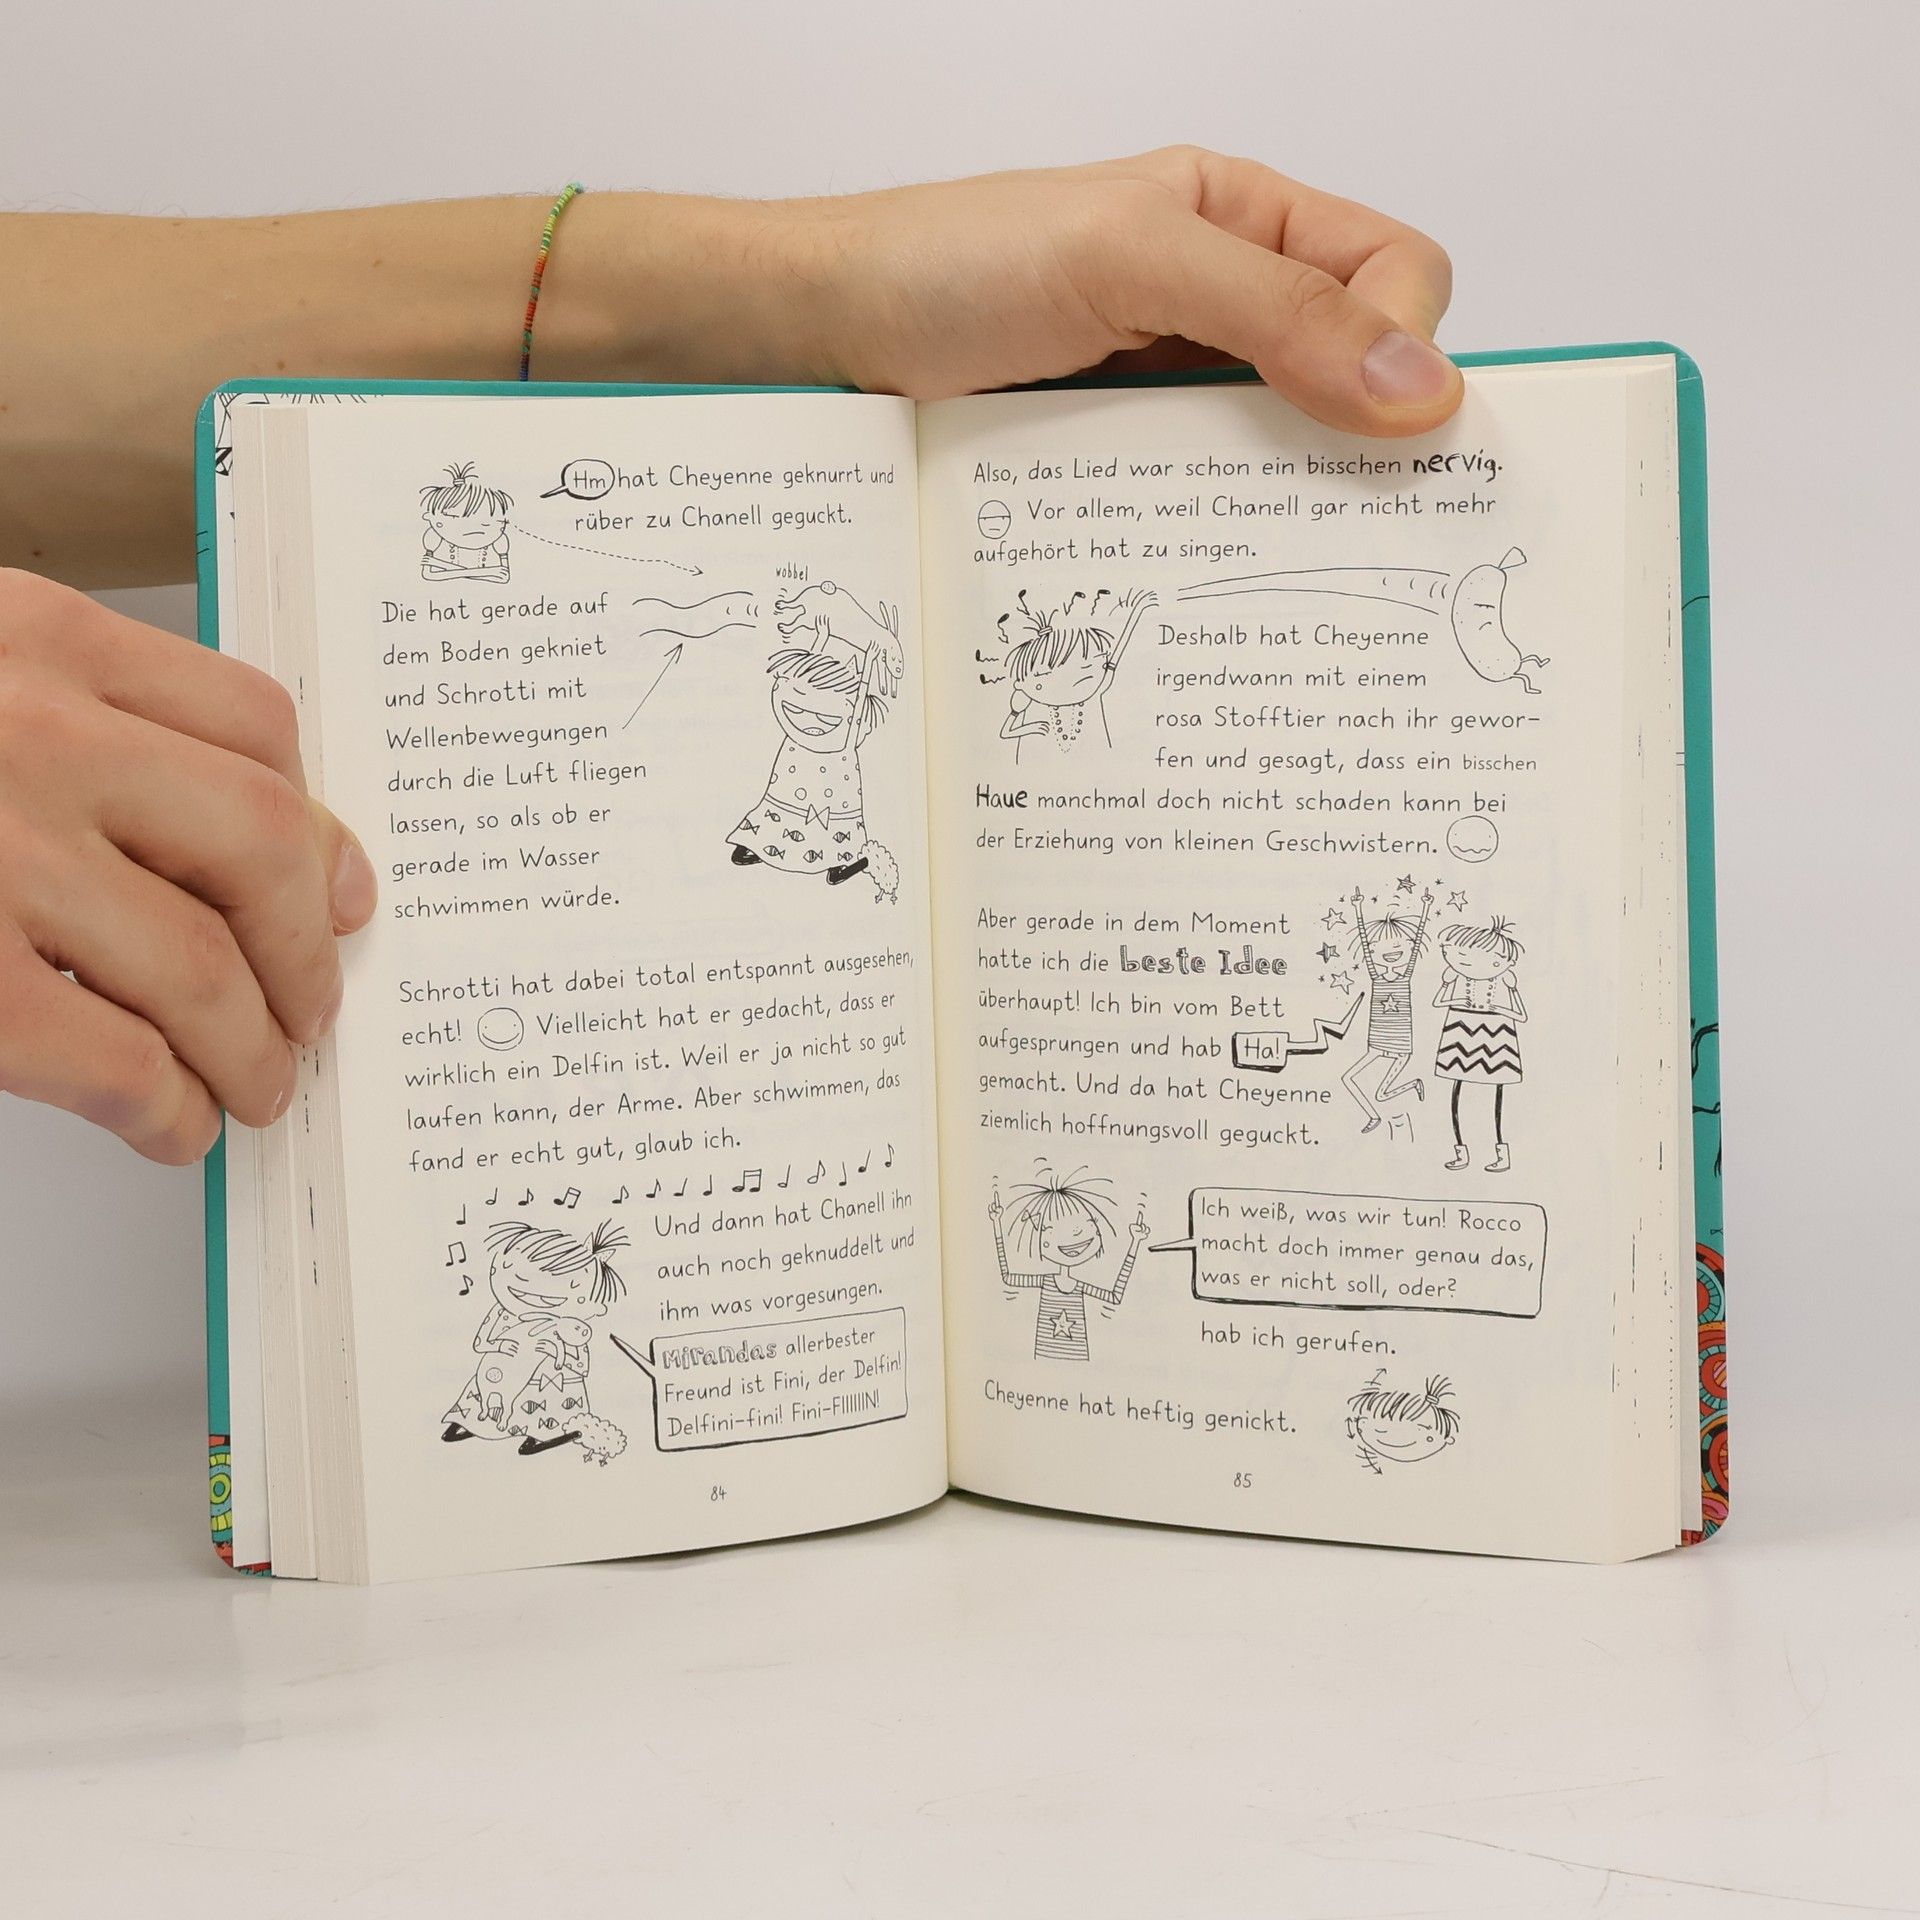 Hm hat Cheyenne geknurrt und
rüber zu Chanell geguckt.
wobbel
Die hat gerade auf
dem Boden gekniet
und Schrotti mit
Wellenbewegungen
durch die Luft fliegen
lassen, so als ob er
gerade im Wasser
schwimmen würde.
Schrotti hat dabei total entspannt ausgesehen,
echt! Vielleicht hat er gedacht, dass er
wirklich ein Delfin ist. Weil er ja nicht so gut
laufen kann, der Arme. Aber schwimmen, das
fand er echt gut, glaub ich.
Und dann hat Chanell ihn
auch noch geknuddelt und
ihm was vorgesungen.
Mirandas allerbester
Freund ist Fini, der Delfin!
Delfini-fini! Fini-FIIIIIIN!
84
Also, das Lied war schon ein bisschen nervig.
Vor allem, weil Chanell gar nicht mehr
aufgehört hat zu singen.
Deshalb hat Cheyenne
irgendwann mit einem
rosa Stofftier nach ihr gewor-
fen und gesagt, dass ein bisschen
Haue manchmal doch nicht schaden kann bei
der Erziehung von kleinen Geschwistern.
Aber gerade in dem Moment
hatte ich die beste Idee
überhaupt! Ich bin vom Bett
aufgesprungen und hab Ha!
gemacht. Und da hat Cheyenne
ziemlich hoffnungsvoll geguckt.
Ich weiß, was wir tun! Rocco
macht doch immer genau das,
was er nicht soll, oder?
hab ich gerufen.
Cheyenne hat heftig genickt.
85